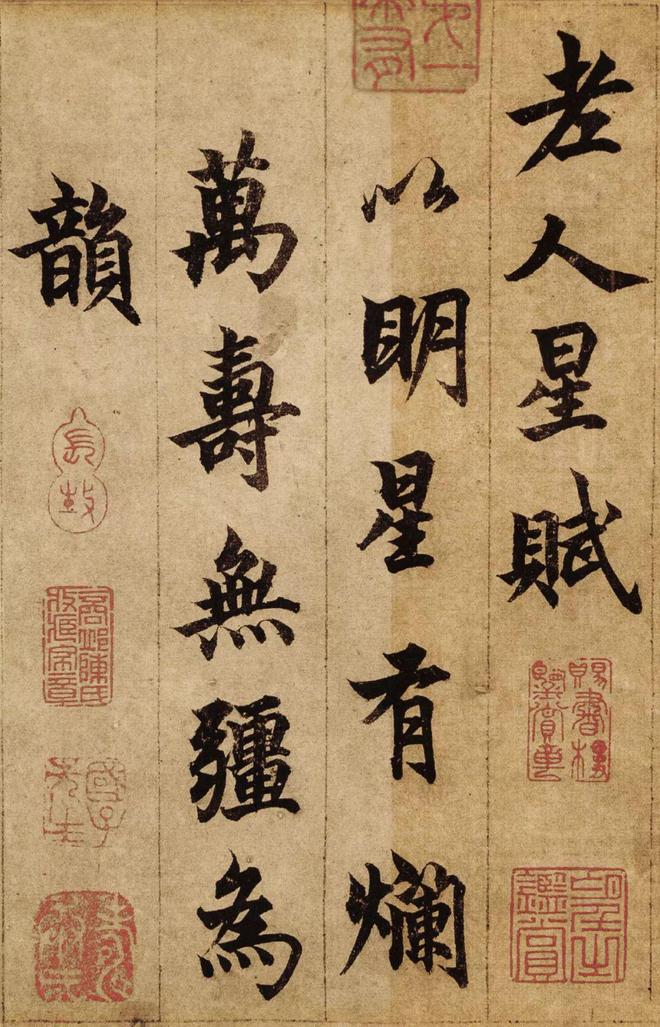 老人星賦
以明星有爛
萬壽無疆為
韻